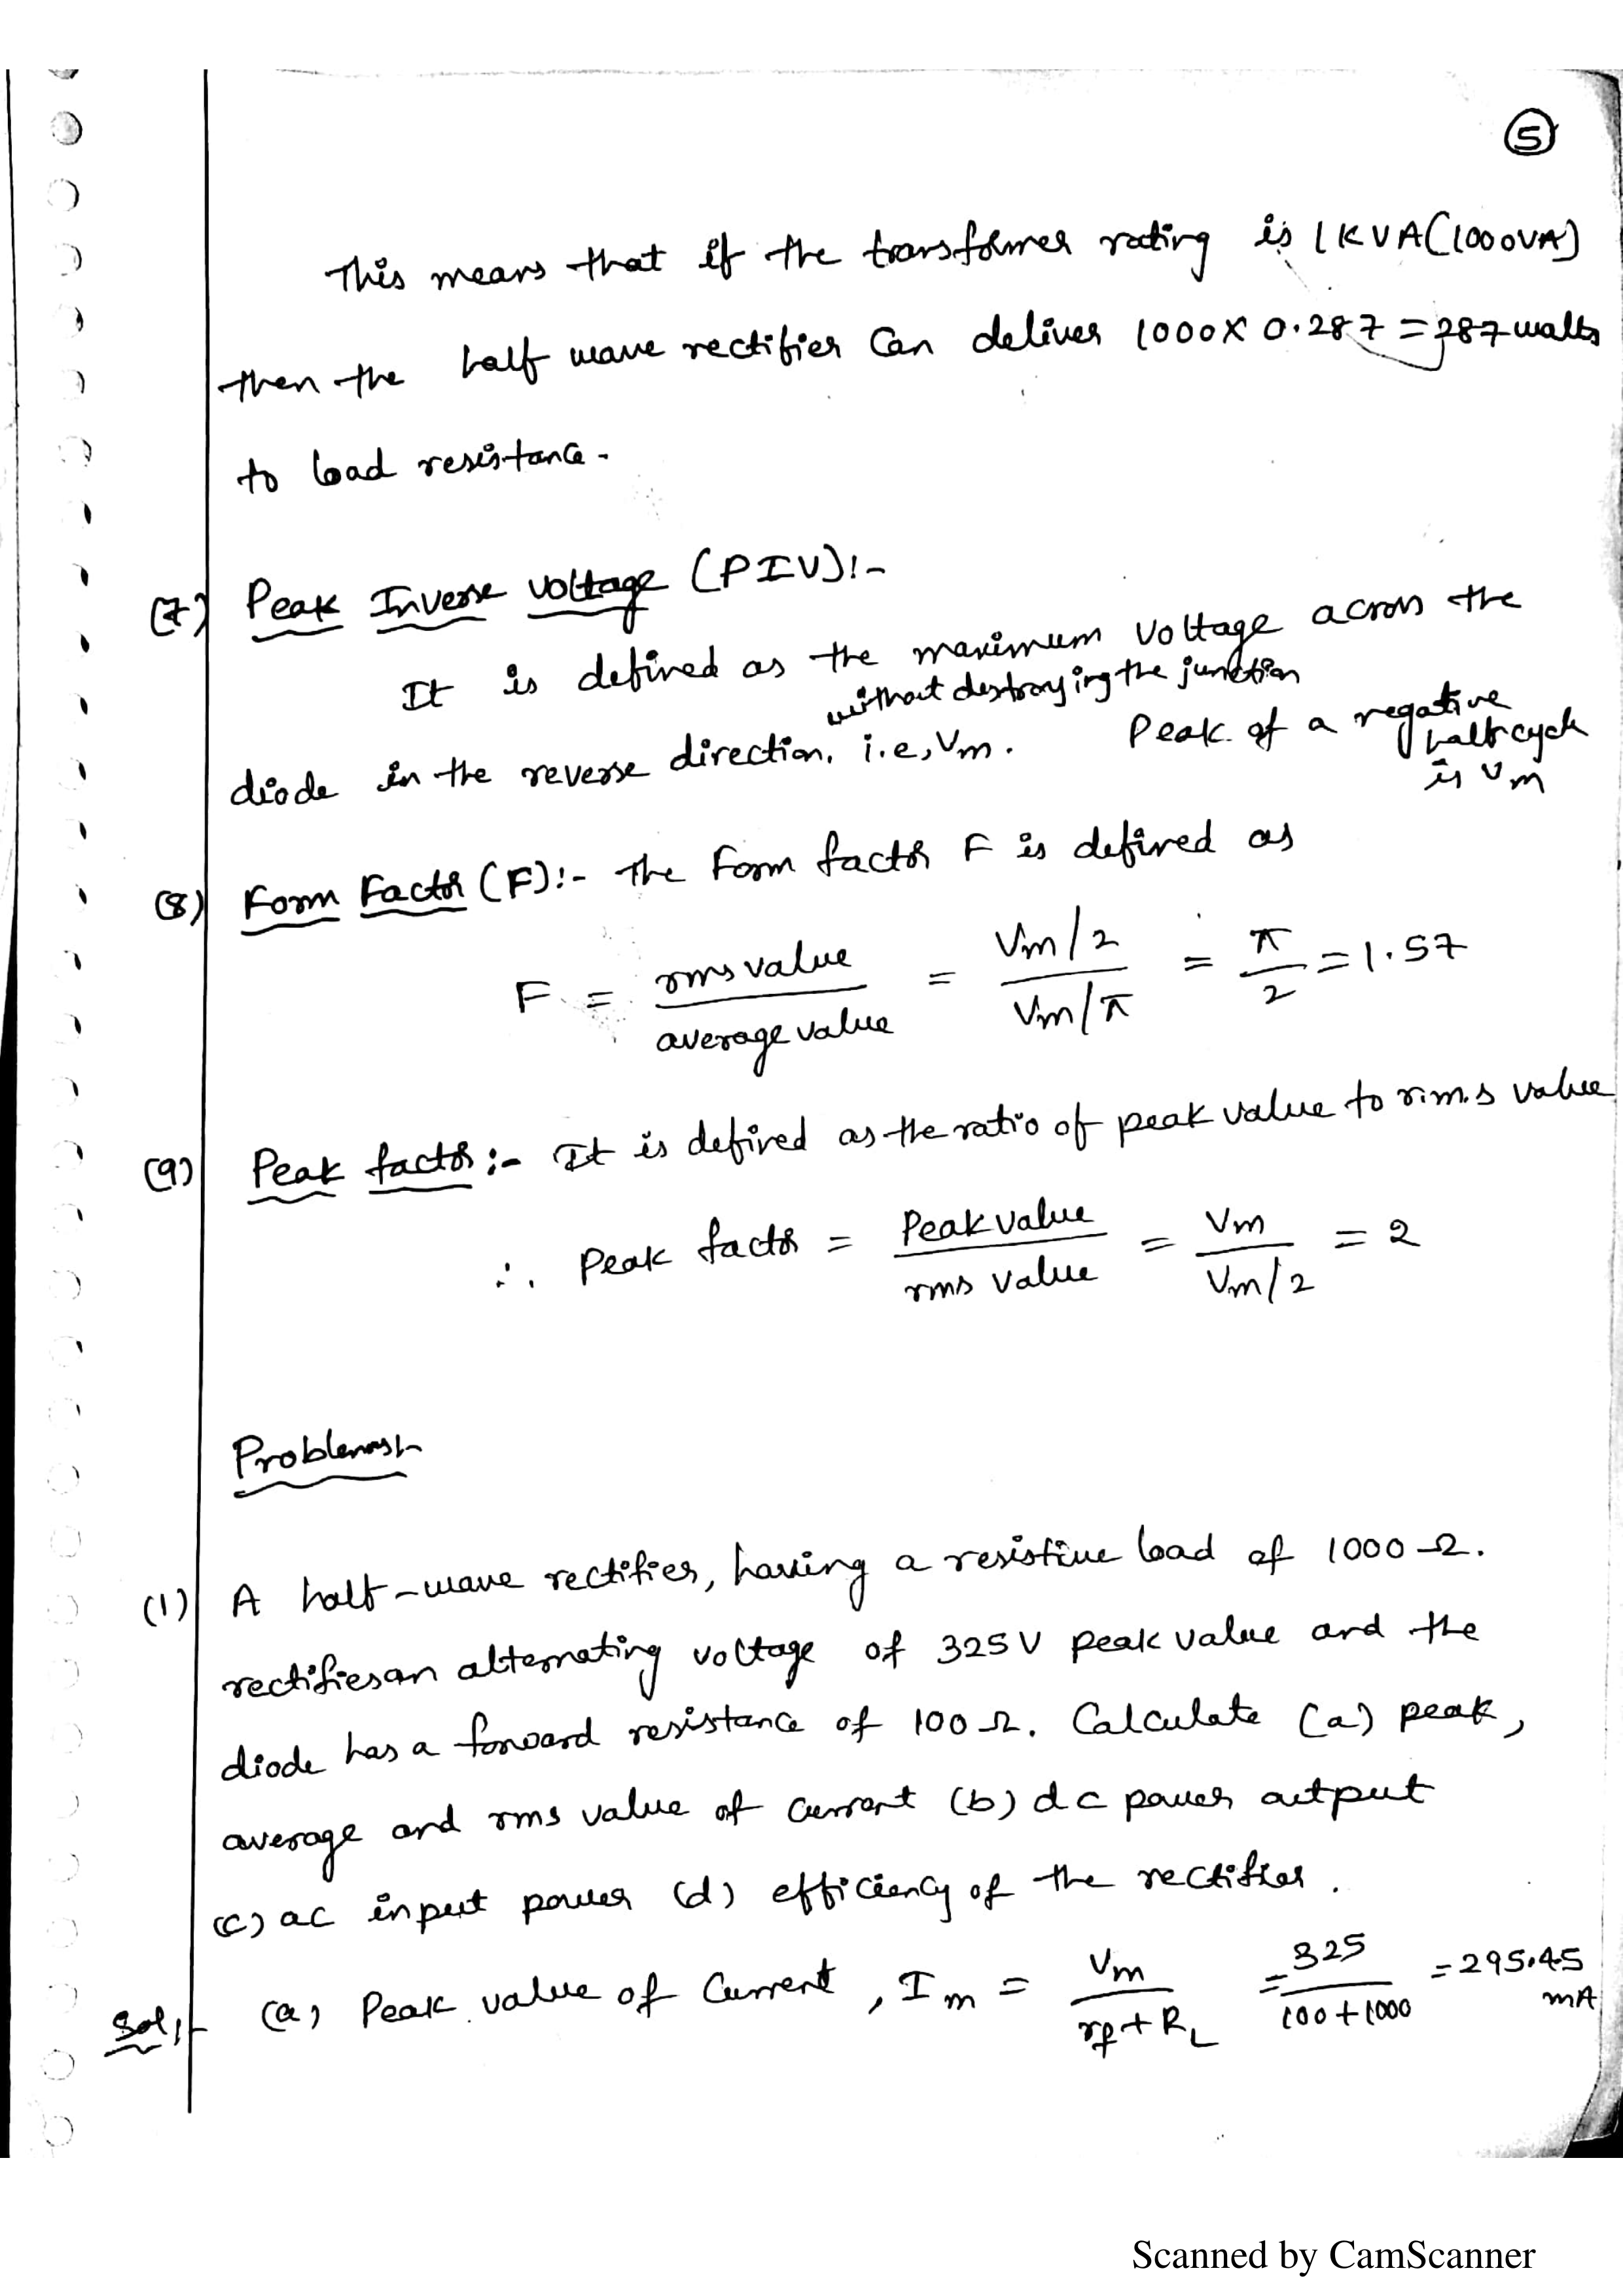 5
This means that if the transformer rating is 1KVA(1000VA)
then the half wave rectifier can deliver 1000 X 0.287 = 287 watts
to load resistance.
(7) Peak Inverse Voltage (PIV):-
It is defined as the maximum voltage across the
without destroying the junction
diode in the reverse direction. i.e, Vm. Peak of a negative
half cycle
is Vm
(8) Form Factor (F):- The Form factor F is defined as
F = rms value / average value = Vm/2 / Vm/π = π/2 = 1.57
(9) Peak factor:- It is defined as the ratio of peak value to r.m.s value
∴ Peak factor = Peak value / rms value = Vm / Vm/2 = 2
Problems:-
(1) A half-wave rectifier, having a resistive load of 1000 Ω.
rectifies an alternating voltage of 325V peak value and the
diode has a forward resistance of 100 Ω. Calculate (a) peak,
average and rms value of current (b) dc power output
(c) ac input power (d) efficiency of the rectifier.
Sol:- (a) Peak value of Current, Im = Vm / rf + RL = 325 / 100 + 1000 = 295.45
mA
Scanned by CamScanner